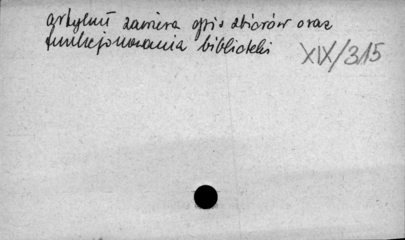 artykuł zawiera opis zbiorów oraz
funkcjonowania biblioteki
XIX/315